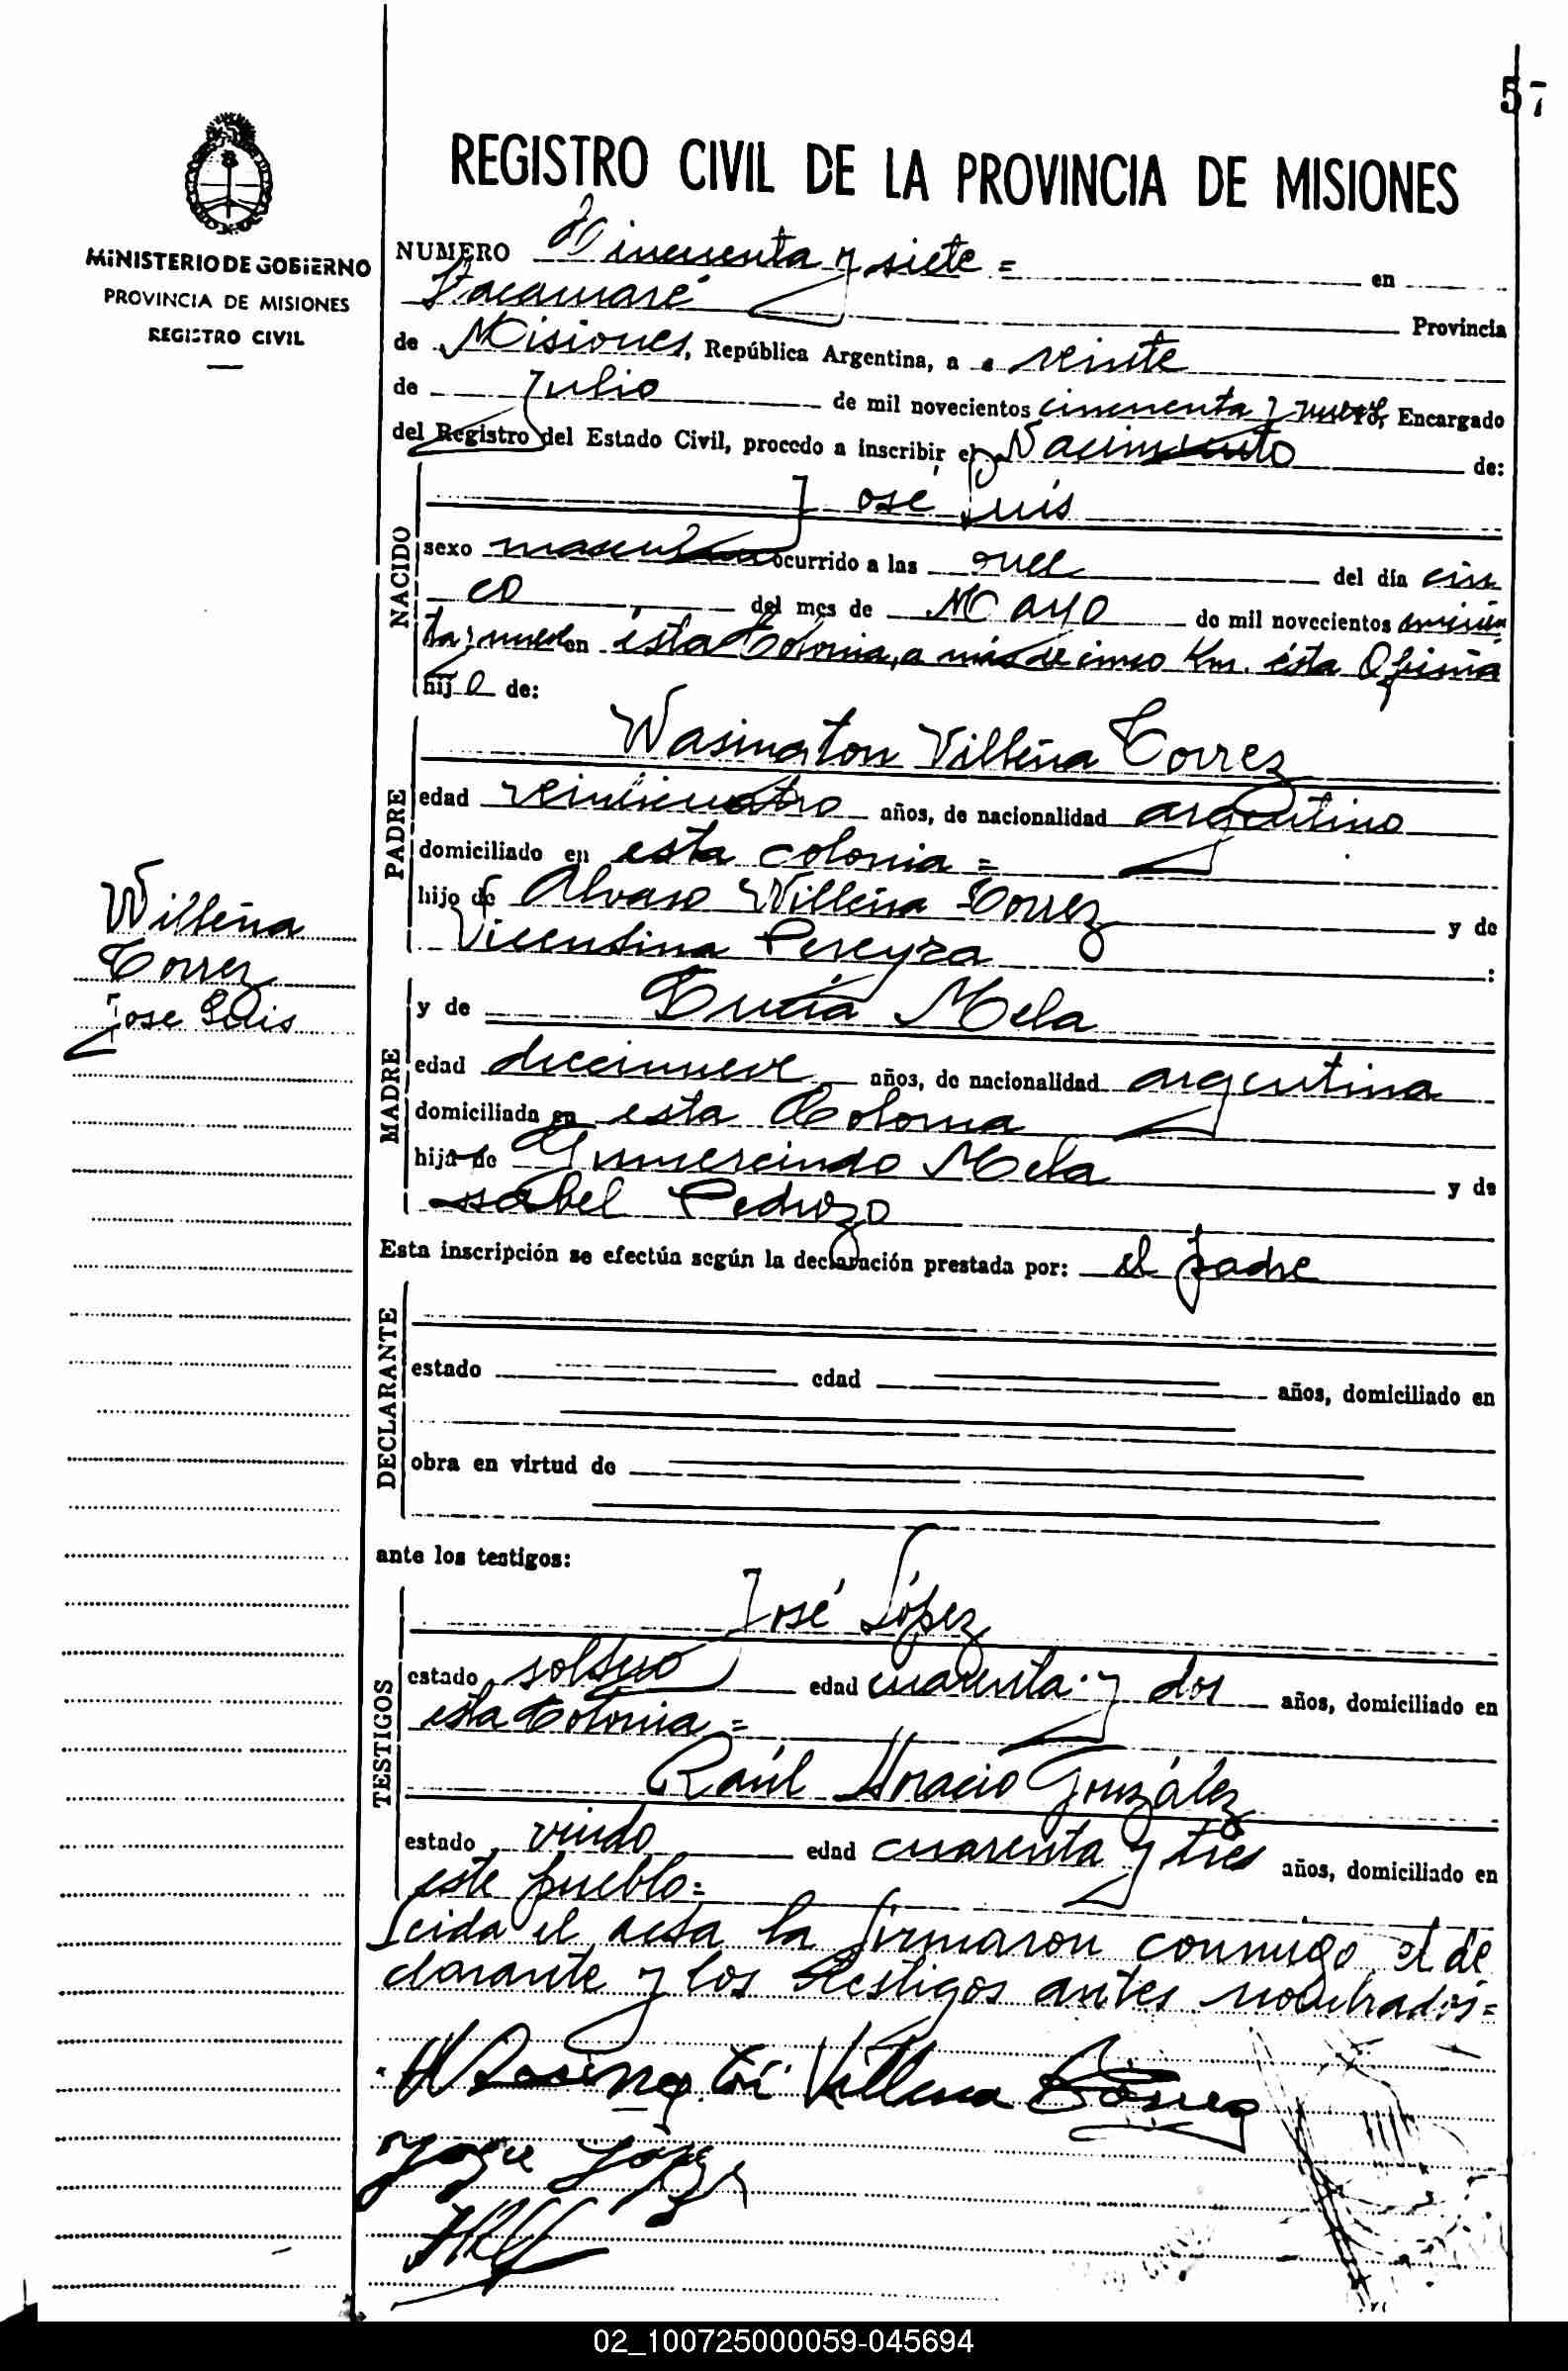 57
MINISTERIO DE GOBIERNO
PROVINCIA DE MISIONES
REGISTRO CIVIL
REGISTRO CIVIL DE LA PROVINCIA DE MISIONES
NUMERO Cincuenta y siete = en
Provincia
de Misiones, República Argentina, a veinte
de Julio de mil novecientos cincuenta y nueve, Encargado
del Registro del Estado Civil, procedo a inscribir el Nacimiento de:
NACIDO
José Luis
sexo masculino ocurrido a las once del día cin
co del mes de Mayo de mil novecientos cincuen
ta y nueve en ésta Colonia, a más de cinco Km. ésta Oficina
hijo de:
PADRE
Wasington Villena Torrez
edad veinticuatro años, de nacionalidad argentino
domiciliado en esta colonia =
hijo de Alvaro Villena Torrez y de
Vicentina Pereyra :
Willena
Torrez
Jose Luis
MADRE
y de Lucía Mela
edad diecinueve años, de nacionalidad argentina
domiciliada en esta Colonia
hija de Gumercindo Mela y de
Isabel Pedrozo
Esta inscripción se efectúa según la declaración prestada por: el padre
DECLARANTE
estado edad años, domiciliado en
obra en virtud de
ante los testigos:
TESTIGOS
José López
estado soltero edad cuarenta y dos años, domiciliado en
esta Colonia =
Raúl Horacio González
estado viudo edad cuarenta y tres años, domiciliado en
este pueblo =
Leida el acta la firmaron conmigo, el de
clarante y los testigos antes nombrados =
Villena Torrez
02_100725000059-045694